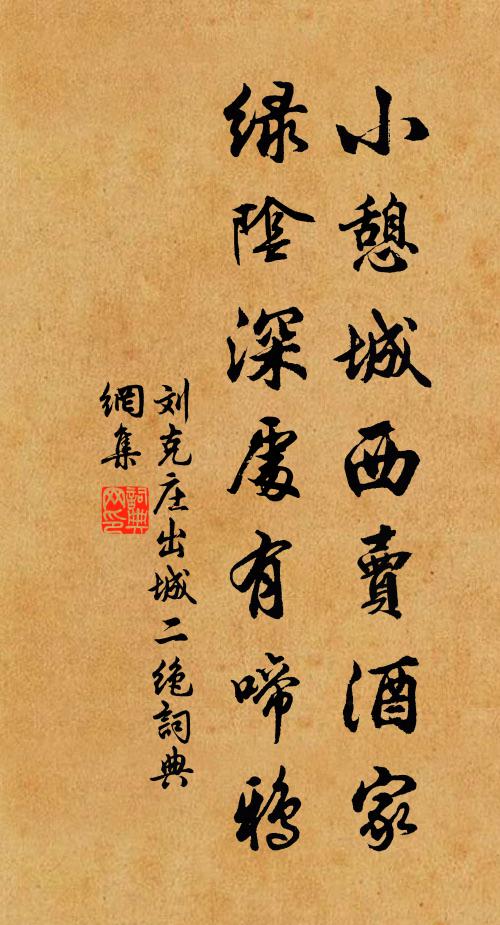 小憩城西賣酒家
緑陰深處有啼鴉
刘克庄出城二绝詞典
網集
詞典
网印